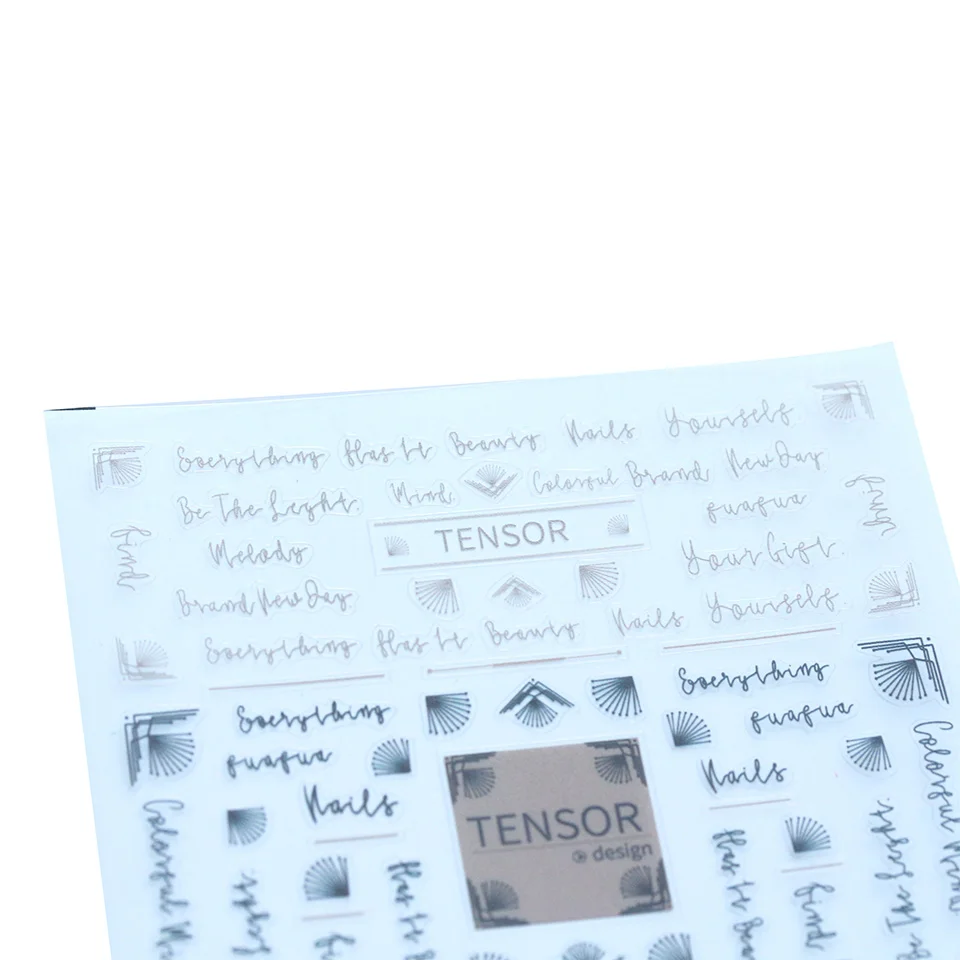 Everything Has It Beauty Nails Yourself
Be The Light. Mind. Colorful Brand New Day
find
Melody
TENSOR
fuafua
find
Your Gift.
Brand New Day.
Everything Has It Beauty Nails Yourself
Everything
fuafua
Nails
Everything
fuafua
Nails
TENSOR
design
Colorful
Light.
Has It
find
Has It
find
Be The Light.
Colorful Mind